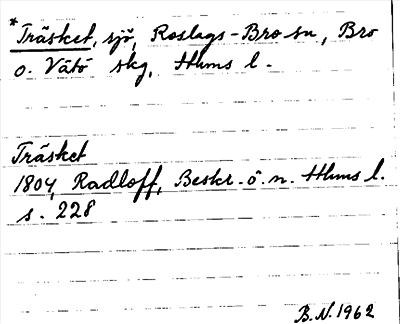 *Träsket, sjö, Roslags-Bro sn, Bro
o. Vätö skg, Sthms l.
Träsket
1804, Radloff, Beskr. ö. n. Sthms l.
s. 228
B.N. 1962